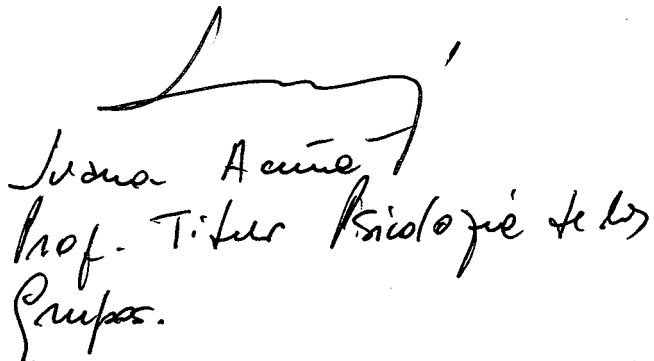 Juana Acuña
Prof. Titular Psicología de los
Grupos.